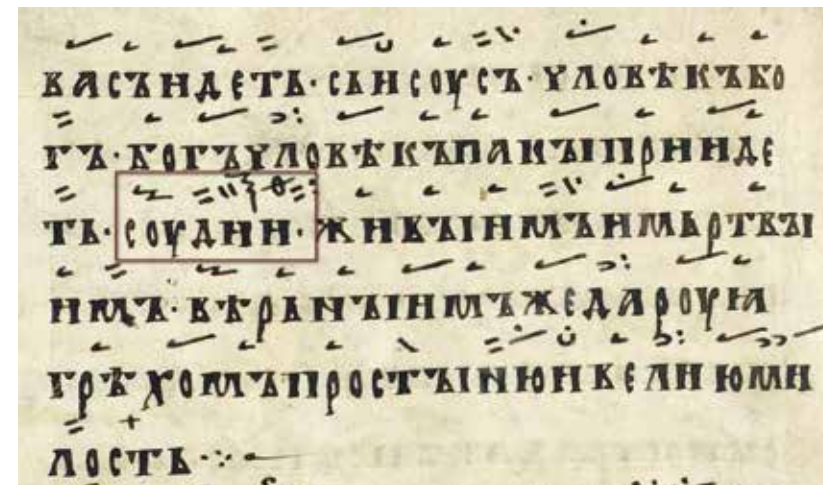 васъндеть· сьнсоусъ· ꙋловѣкъбо
гъ· богъꙋловѣкъпакꙑпринде
ть· соудии· живꙑимъимьртвꙑ
имъ· вѣрьнꙑимъжедароуꙗ
грѣхомъпростꙑнюивелиюми
лость ⁘